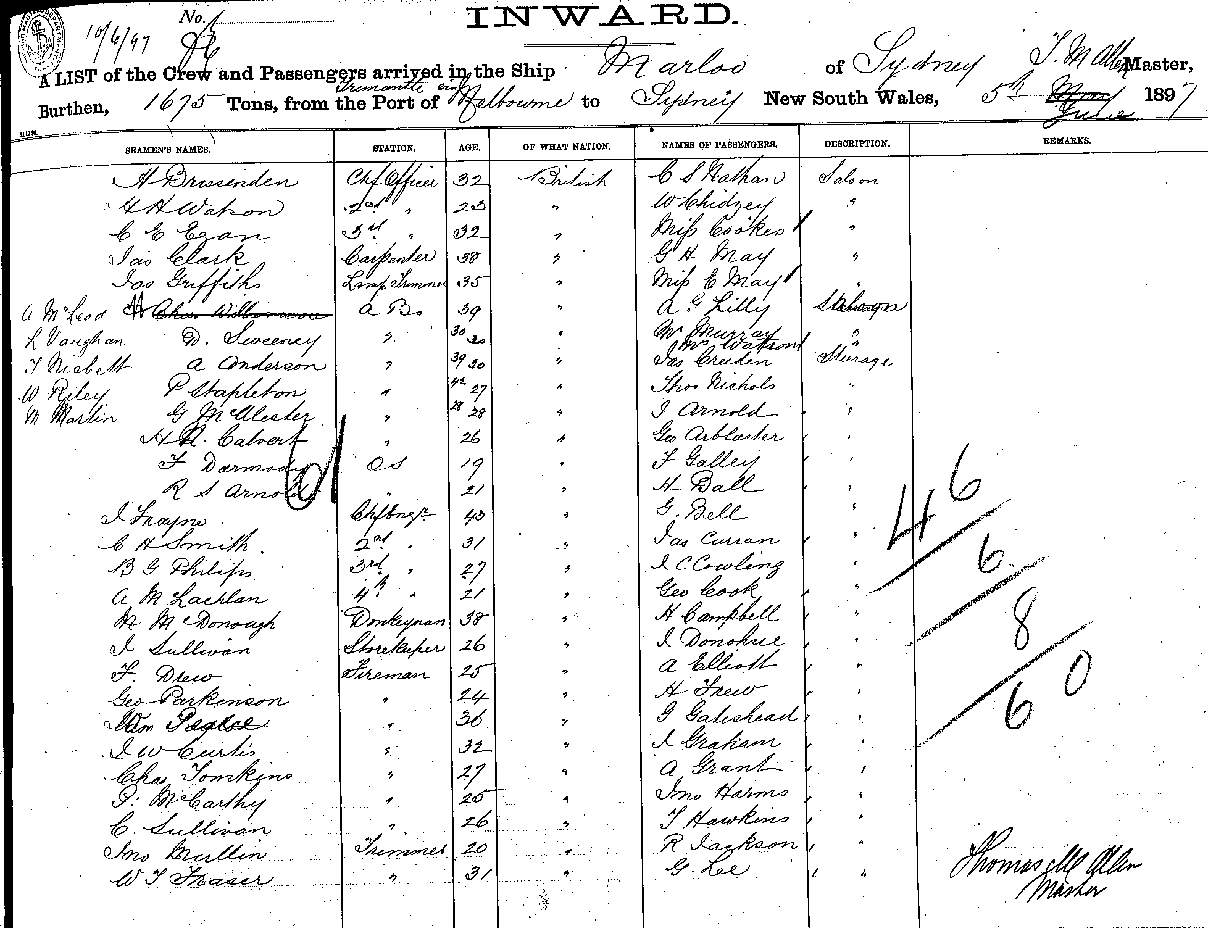 INWARD.
No.
10/6/97
A LIST of the Crew and Passengers arrived in the Ship Marloo of Sydney T. M Allen Master,
Burthen, 1675 Tons, from the Port of Fremantle via Melbourne to Sydney New South Wales, 5th May June 1897
SEAMEN'S NAMES. STATION. AGE. OF WHAT NATION. NAMES OF PASSENGERS. DESCRIPTION. REMARKS.
A Brissenden Chf. Officer 32 British C S Nathan Saloon
H H Watson 2nd " 23 " W Chidzey "
C E Egan 3rd " 32 " Miss Cookes "
Jas Clark Carpenter 38 " G H May "
Jas Griffiths Lamp Trimmer 35 " Miss E May "
A McLeod Chas Williamson A Bs 39 " A G Lilly
L Vaughan D. Sweeney " 30 20 " Mr Murray "
Mrs Watson
T Nisbett A Anderson " 39 20 " Jas Cruden Sturage
W Riley P Stapleton " 42 27 " Thos Nichols "
M Martin G McAlester " 28 28 " J Arnold "
H N. Calvert " 26 " Geo Arblaster "
F Darmody O S 19 " F Galley "
R S Arnold 21 " H Ball "
J Frayne Chf Engr 43 " G. Bell "
C H Smith 2nd " 31 " Jas Curran "
B G Philips 3rd " 27 " J C Cowling "
A McLachlan 4th " 21 " Geo Cook "
M McDonough Donkeyman 38 " H Campbell "
J Sullivan Storekeeper 26 " J. Donohue "
F. Drew Fireman 25 " A Elliott "
Geo Parkinson " 24 " H Frew "
Wm Pearce " 36 " G Gateshead "
J W Curtis " 32 " J Graham "
Chas Tomkins " 27 " A Grant "
P. McCarthy " 25 " Jno Harms "
C. Sullivan " 26 " T Hawkins "
Jno Mullin Trimmer 20 " R Jackson "
W T Fraser " 31 " G. Lee "
46
6
8
60
Thomas M Allen
Master